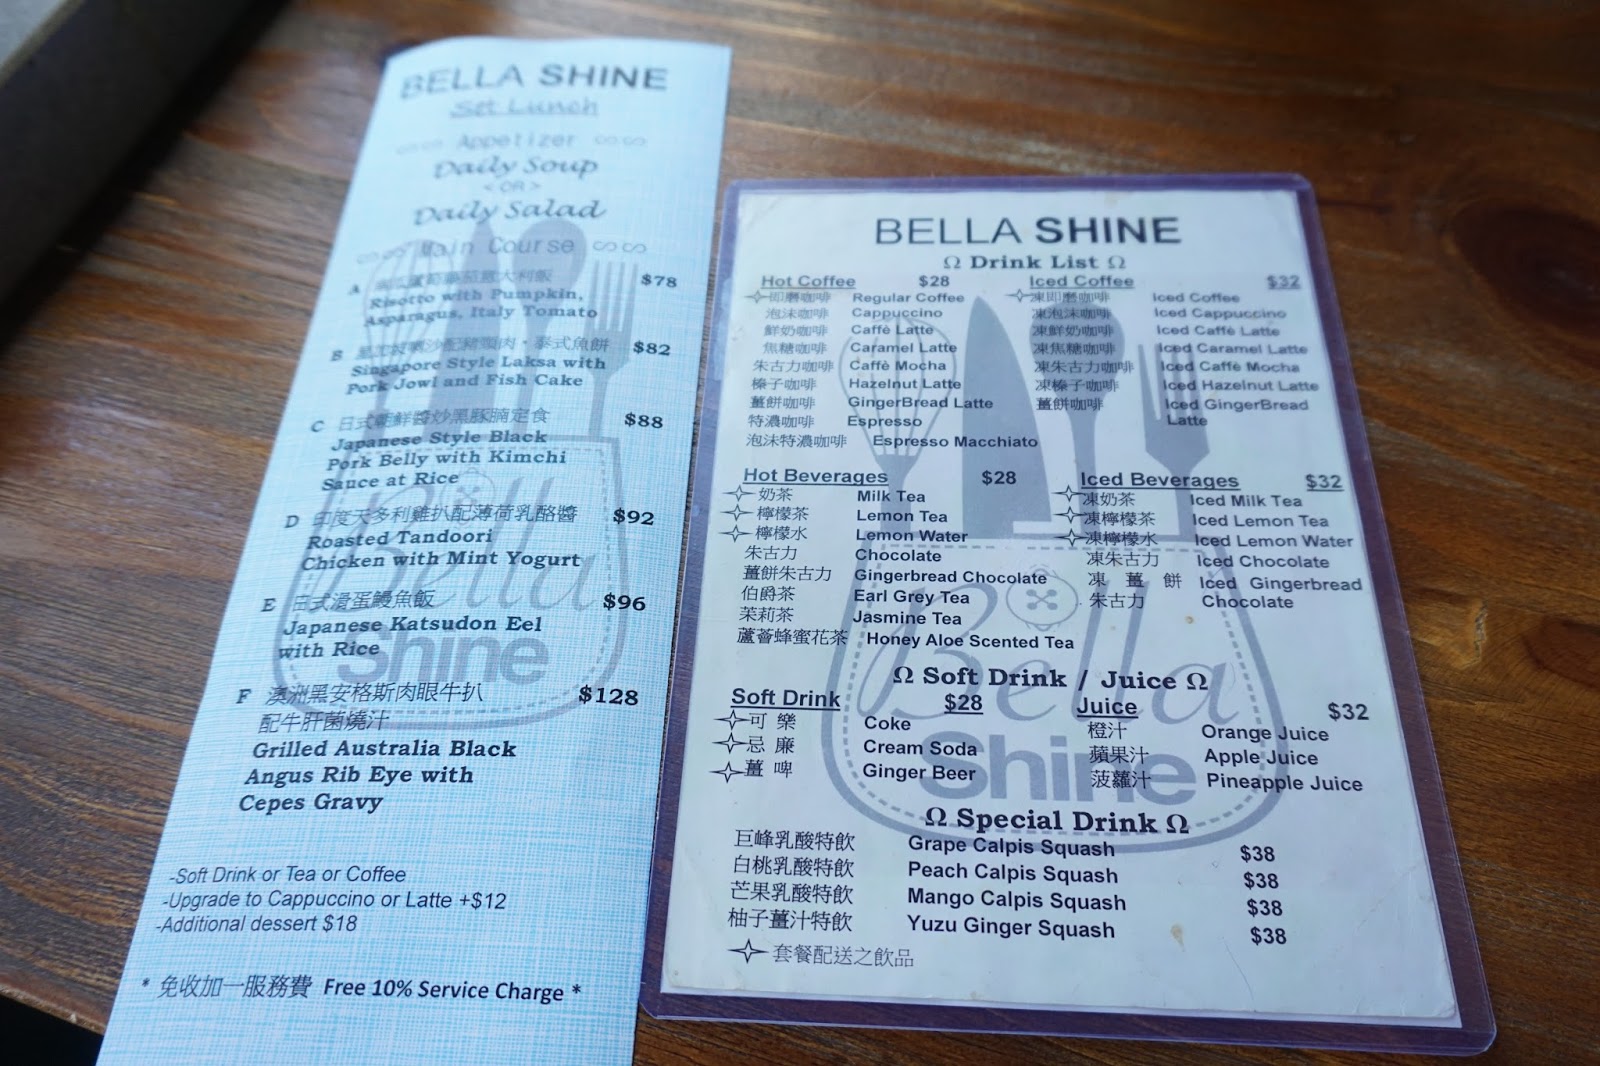 BELLA SHINE
Set Lunch
∽∽ Appetizer ∽∽
Daily Soup
<OR>
Daily Salad
∽∽ Main Course ∽∽
A 蘆筍蕃茄意大利飯 $78
Risotto with Pumpkin,
Asparagus, Italy Tomato
B 星加坡喇沙配豬頸肉·泰式魚餅 $82
Singapore Style Laksa with
Pork Jowl and Fish Cake
C 日式朝鮮醬炒黑豚腩定食 $88
Japanese Style Black
Pork Belly with Kimchi
Sauce at Rice
D 印度天多利雞扒配薄荷乳酪醬 $92
Roasted Tandoori
Chicken with Mint Yogurt
E 日式滑蛋鰻魚飯 $96
Japanese Katsudon Eel
with Rice
F 澳洲黑安格斯肉眼牛扒 $128
配牛肝菌燒汁
Grilled Australia Black
Angus Rib Eye with
Cepes Gravy
-Soft Drink or Tea or Coffee
-Upgrade to Cappuccino or Latte +$12
-Additional dessert $18
* 免收加一服務費 Free 10% Service Charge *
Bella
Shine
BELLA SHINE
Ω Drink List Ω
Hot Coffee $28
✧即磨咖啡 Regular Coffee
泡沫咖啡 Cappuccino
鮮奶咖啡 Caffè Latte
焦糖咖啡 Caramel Latte
朱古力咖啡 Caffè Mocha
榛子咖啡 Hazelnut Latte
薑餅咖啡 GingerBread Latte
特濃咖啡 Espresso
泡沫特濃咖啡 Espresso Macchiato
Iced Coffee $32
✧凍即磨咖啡 Iced Coffee
凍泡沫咖啡 Iced Cappuccino
凍鮮奶咖啡 Iced Caffè Latte
凍焦糖咖啡 Iced Caramel Latte
凍朱古力咖啡 Iced Caffè Mocha
凍榛子咖啡 Iced Hazelnut Latte
薑餅咖啡 Iced GingerBread
Latte
Hot Beverages $28
✧奶茶 Milk Tea
✧檸檬茶 Lemon Tea
✧檸檬水 Lemon Water
朱古力 Chocolate
薑餅朱古力 Gingerbread Chocolate
伯爵茶 Earl Grey Tea
茉莉茶 Jasmine Tea
蘆薈蜂蜜花茶 Honey Aloe Scented Tea
Iced Beverages $32
✧凍奶茶 Iced Milk Tea
✧凍檸檬茶 Iced Lemon Tea
✧凍檸檬水 Iced Lemon Water
凍朱古力 Iced Chocolate
凍薑餅 Iced Gingerbread
朱古力 Chocolate
Ω Soft Drink / Juice Ω
Soft Drink $28
✧可樂 Coke
✧忌廉 Cream Soda
✧薑啤 Ginger Beer
Juice $32
橙汁 Orange Juice
蘋果汁 Apple Juice
菠蘿汁 Pineapple Juice
Ω Special Drink Ω
巨峰乳酸特飲 Grape Calpis Squash $38
白桃乳酸特飲 Peach Calpis Squash $38
芒果乳酸特飲 Mango Calpis Squash $38
柚子薑汁特飲 Yuzu Ginger Squash $38
✧套餐配送之飲品
Bella
Shine